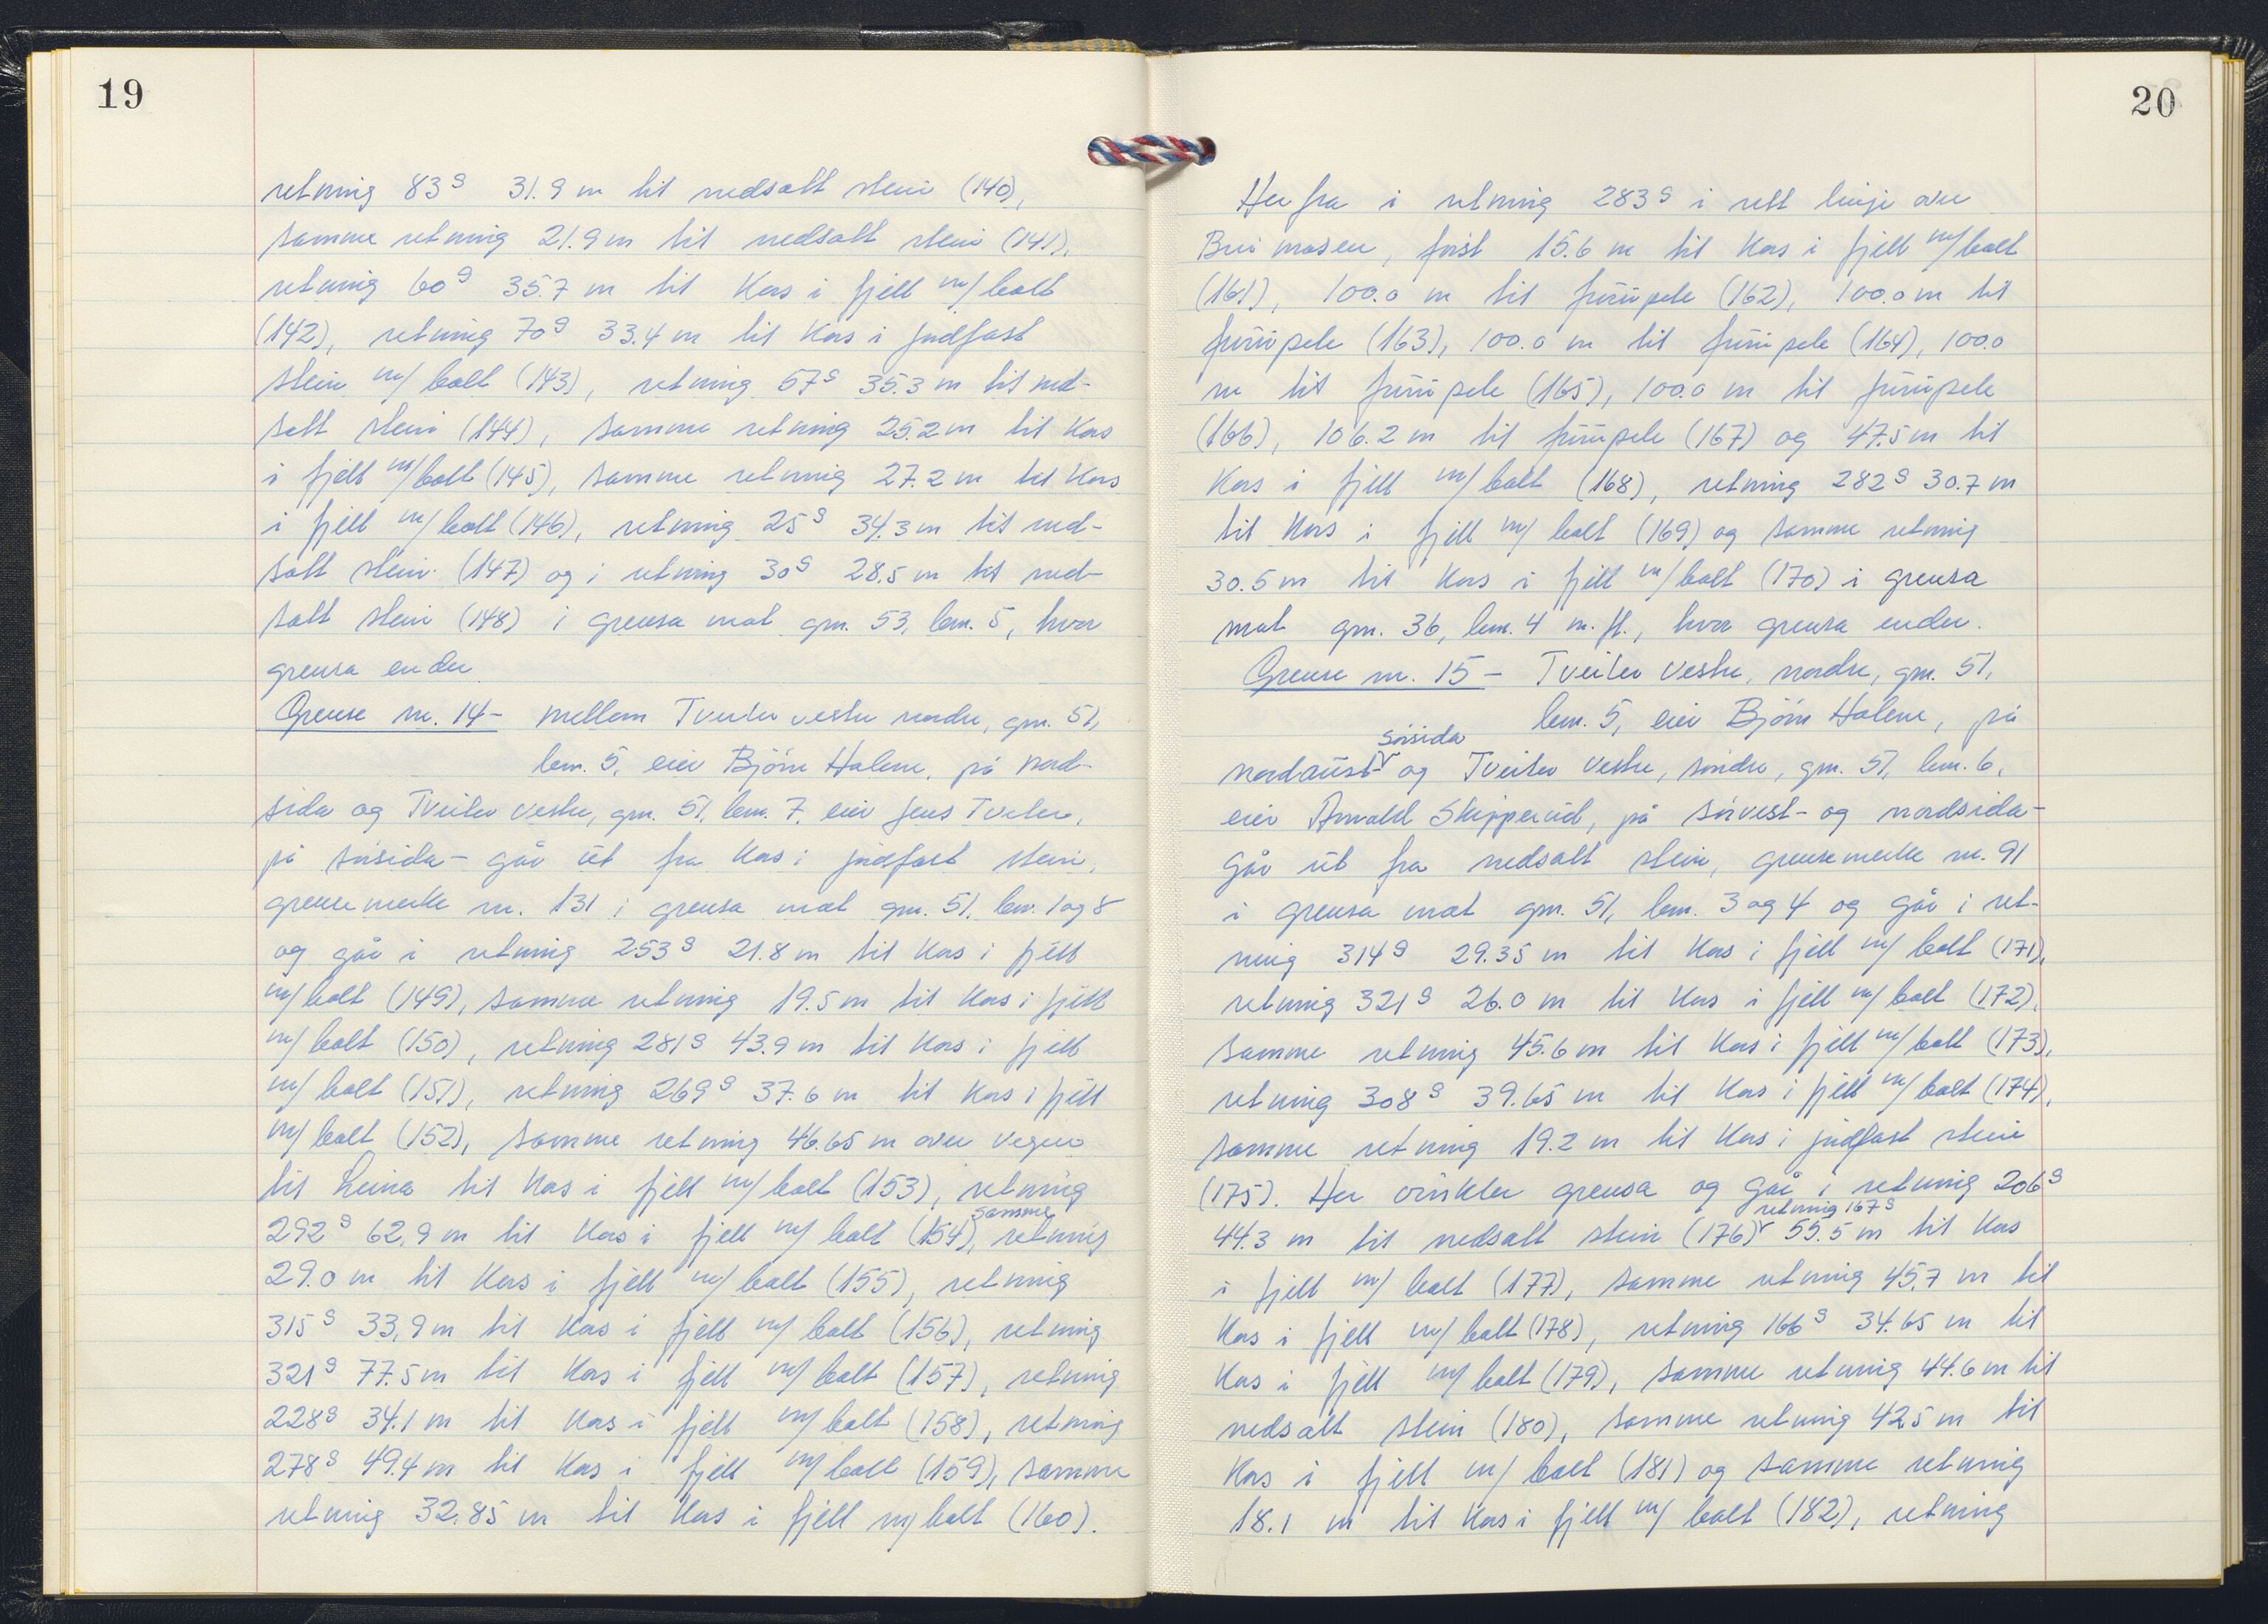 19
retning 83g 31.9 m til nedsatt stein (140),
samme retning 21.9 m til nedsatt stein (141),
retning 60g 35.7 m til kors i fjell m/bolt
(142), retning 70g 33.4 m til kors i jordfast
stein m/bolt (143), retning 57g 35.3 m til ned-
satt stein (144), samme retning 25.2 m til kors
i fjell m/bolt (145), samme retning 27.2 m til kors
i fjell m/bolt (146), retning 25g 34.3 m til ned-
satt stein (147) og i retning 30g 28.5 m til ned-
satt stein (148) i grensa mot gnr. 53, bnr. 5, hvor
grensa ender
Grense nr. 14 - mellom Tveiter vestre nordre, gnr. 51,
bnr. 5, eier Bjørn Halene, på nord-
sida og Tveiter vestre, gnr. 51, bnr. 7, eier Jens Tveter,
på sørsida - går ut fra kors i jordfast stein,
grensemerke nr. 131 i grensa mot gnr. 51, bnr. 1 og 8
og går i retning 253g 21.8 m til kors i fjell
m/bolt (149), samme retning 19.5 m til kors i fjell
m/bolt (150), retning 281g 43.9 m til kors i fjell
m/bolt (151), retning 269g 37.6 m til kors i fjell
m/bolt (152), samme retning 46.65 m over vegen
til Leina til kors i fjell m/bolt (153), retning
292g 62,9 m til kors i fjell m/bolt (154), samme retning
29.0 m til kors i fjell m/bolt (155), retning
315g 33,9 m til kors i fjell m/bolt (156), retning
321g 77.5 m til kors i fjell m/bolt (157), retning
228g 34.1 m til kors i fjell m/bolt (158), retning
278g 49.4 m til kors i fjell m/bolt (159), samme
retning 32.85 m til kors i fjell m/bolt (160).
20
Her fra i retning 283g i rett linje over
Bui mosen, først 15.6 m til kors i fjell m/bolt
(161), 100.0 m til furupele (162), 100.0 m til
furupele (163), 100.0 m til furupele (164), 100.0
m til furupele (165), 100.0 m til furupele
(166), 106.2 m til furupele (167) og 47.5 m til
kors i fjell m/bolt (168), retning 282g 30.7 m
til kors i fjell m/bolt (169) og samme retning
30.5 m til kors i fjell m/bolt (170) i grensa
mot gnr. 36, bnr. 4 m. fl., hvor grensa ender.
Grense nr. 15 - Tveiter vestre, nordre, gnr. 51,
bnr. 5, eier Bjørn Halene, på
sørsida
nordaust- og Tveiter vestre, søndre, gnr. 51, bnr. 6,
eier Arnvald Skipperud, på sørvest- og nordsida -
går ut fra nedsatt stein, grensemerke nr. 91
i grensa mot gnr. 51, bnr. 3 og 4 og går i ret-
ning 314g 29.35 m til kors i fjell m/bolt (171),
retning 321g 26.0 m til kors i fjell m/bolt (172),
samme retning 45.6 m til kors i fjell m/bolt (173),
retning 308g 39.65 m til kors i fjell m/bolt (174),
samme retning 19.2 m til kors i jordfast stein
(175). Her vinkler grensa og går i retning 206g
retning 167g
44.3 m til nedsatt stein (176) 55.5 m til kors
i fjell m/bolt (177), samme retning 45.7 m til
kors i fjell m/bolt (178), retning 166g 34.65 m til
kors i fjell m/bolt (179), samme retning 44.6 m til
nedsatt stein (180), samme retning 42.5 m til
kors i fjell m/bolt (181) og samme retning
18.1 m til kors i fjell m/bolt (182), retning